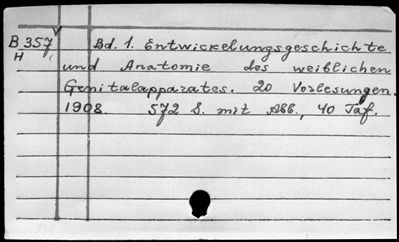 B 357 Bd. 1. Entwickelungsgeschichte
H und Anatomie des weiblichen
Genitalapparates. 20 Vorlesungen.
1908. 572 S. mit Abb., 40 Taf.